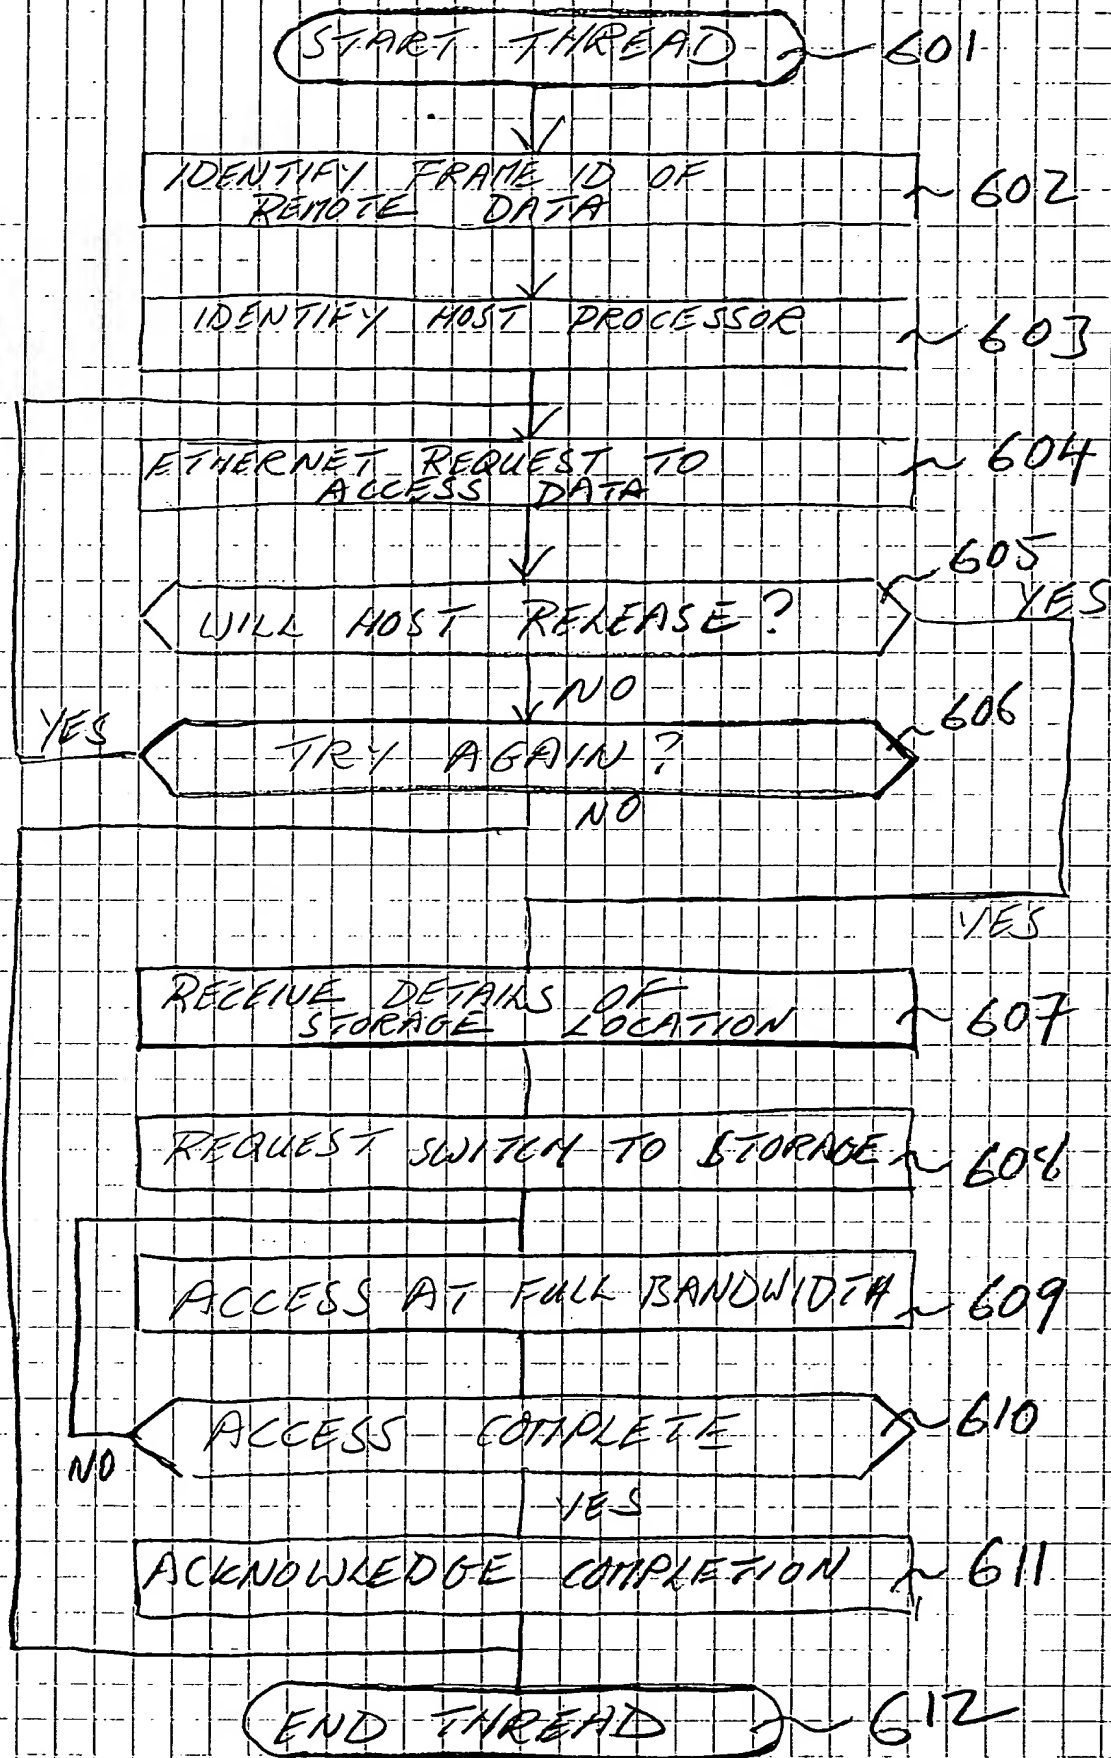 START THREAD 601
IDENTIFY FRAME ID OF
REMOTE DATA
602
IDENTIFY HOST PROCESSOR
603
ETHERNET REQUEST TO
ACCESS DATA
604
605
WILL HOST RELEASE?
YES
NO
606
YES
TRY AGAIN?
NO
YES
RECEIVE DETAILS OF
STORAGE LOCATION
607
REQUEST SWITCH TO STORAGE
608
ACCESS AT FULL BANDWIDTH
609
ACCESS COMPLETE
610
NO
YES
ACKNOWLEDGE COMPLETION
611
END THREAD 612